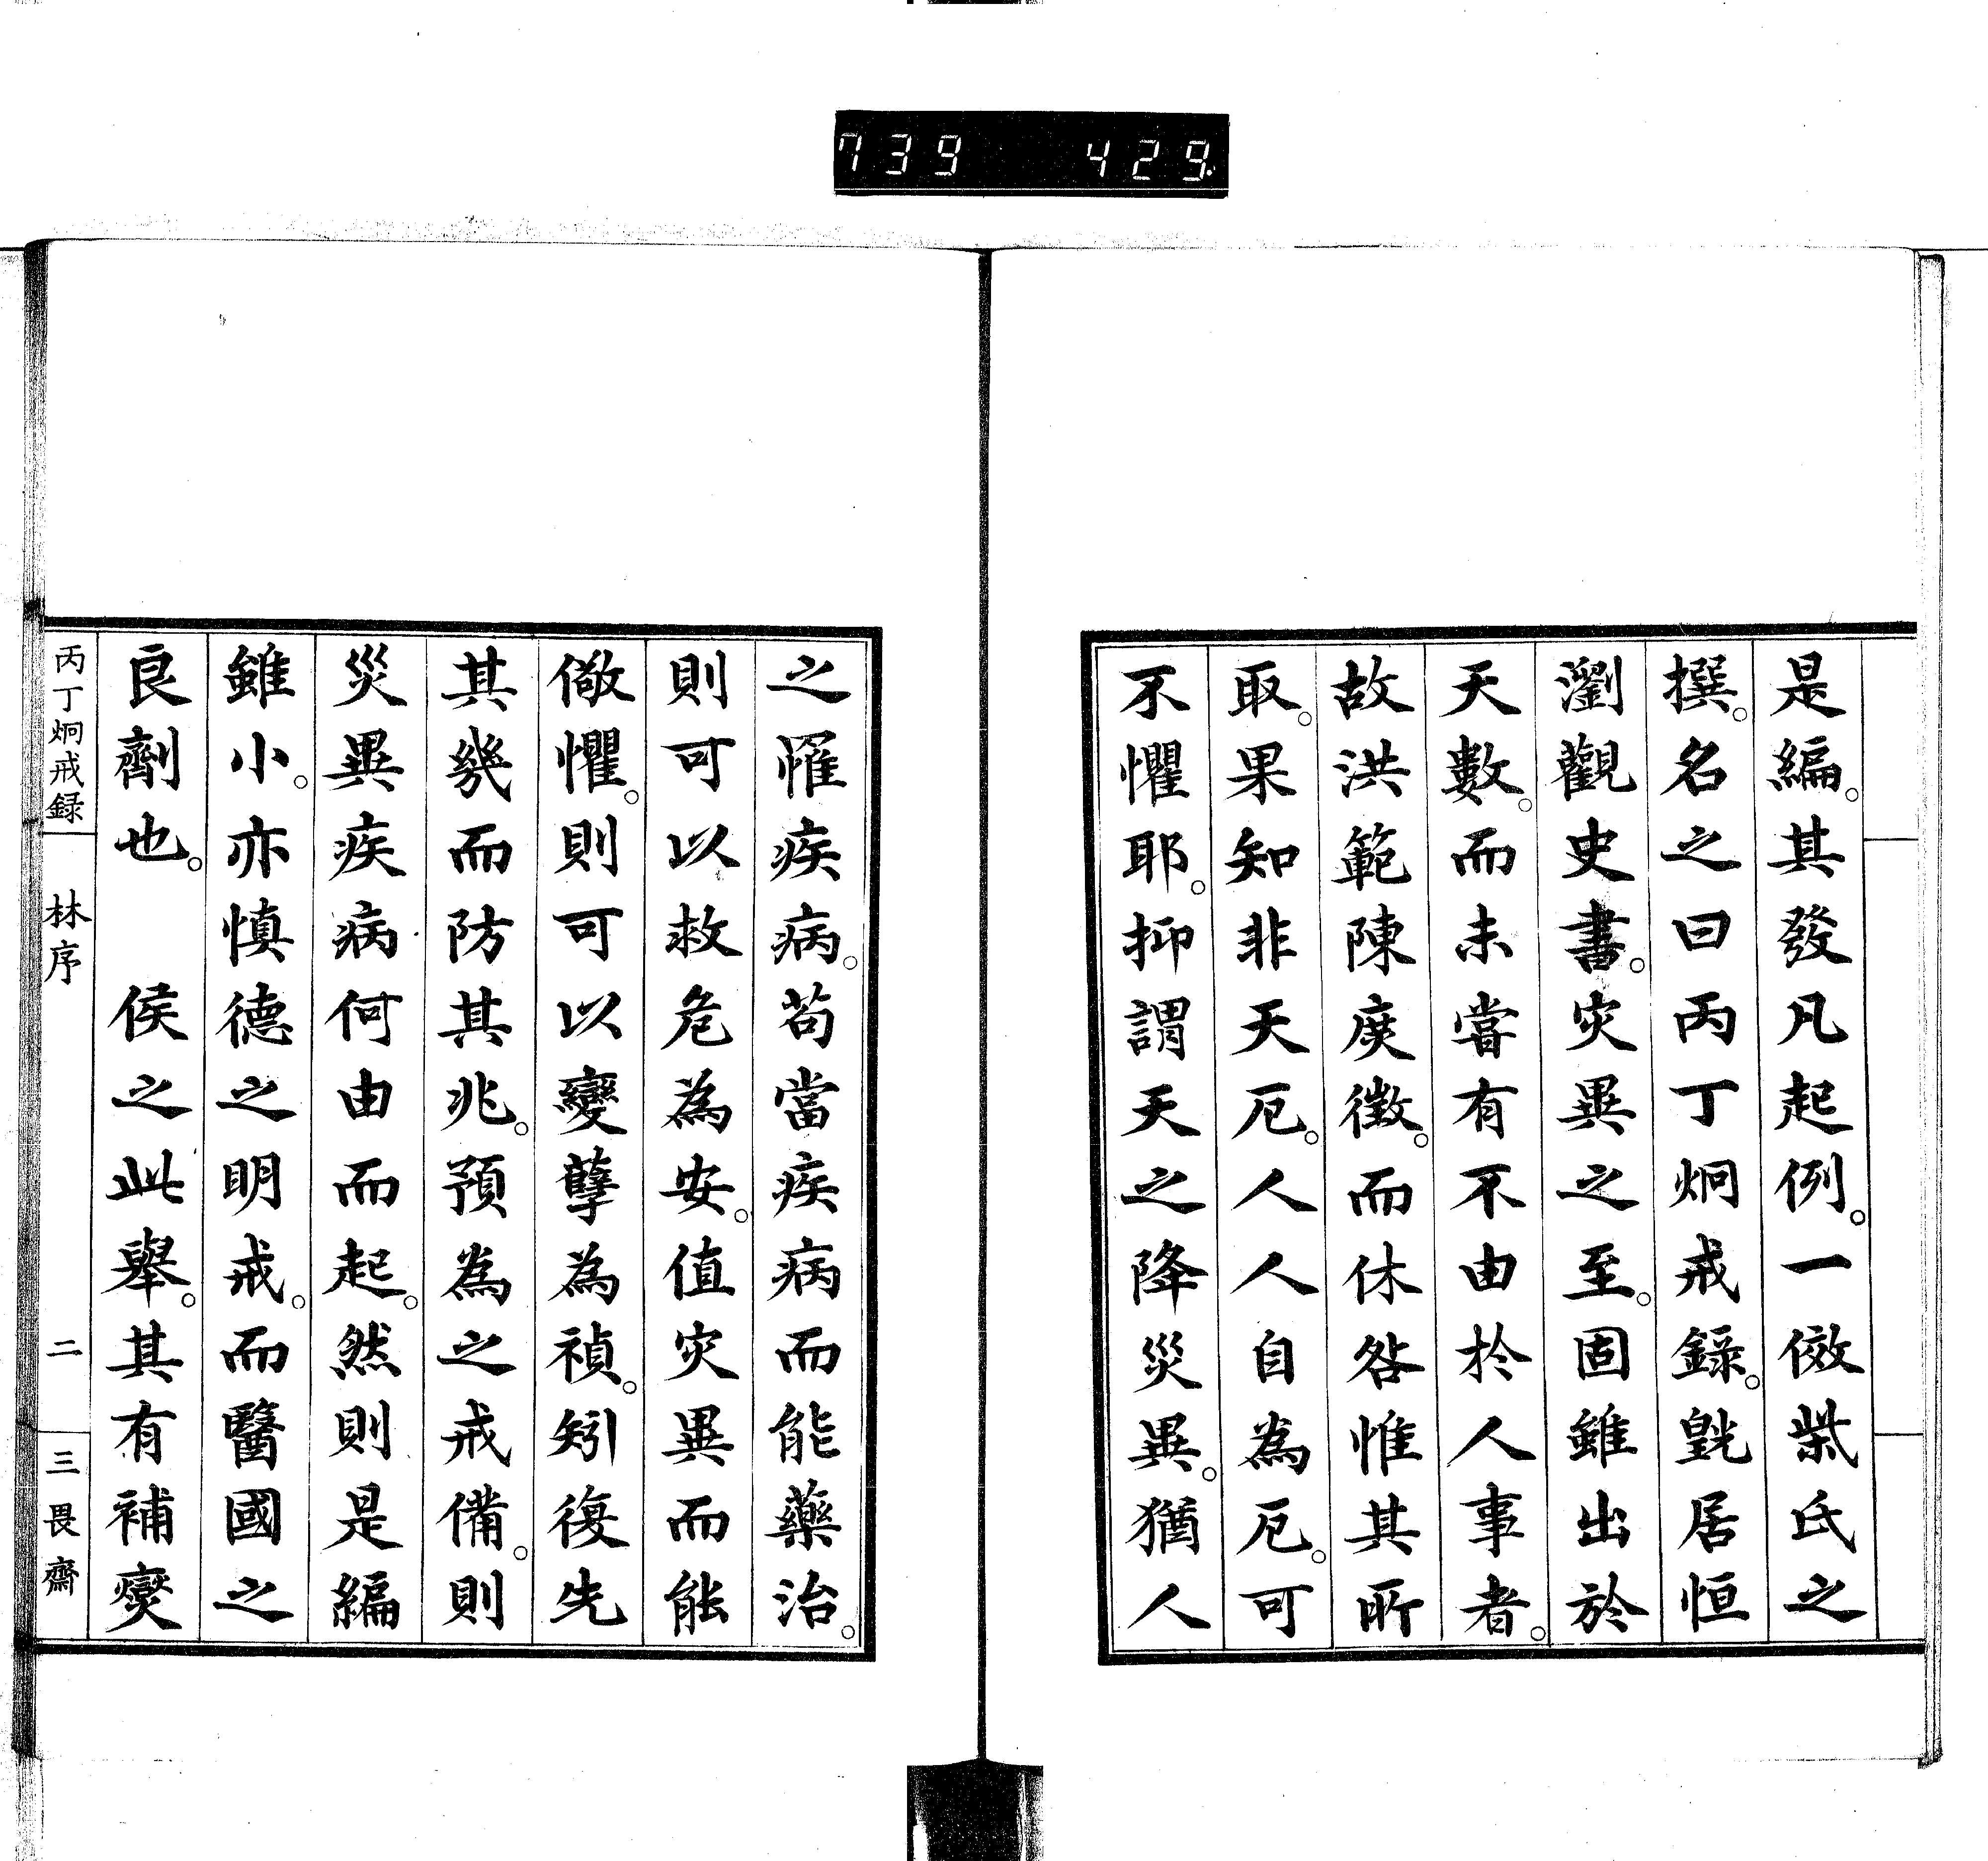 739 429
是編。其發凡起例。一倣柴氏之
撰。名之曰丙丁炯戒錄。㿠居恒
瀏觀史書。灾異之至。固雖出於
天數。而未嘗有不由於人事者。
故洪範陳庶徵。而休咎惟其所
取。果知非天厄。人人自為厄。可
不懼耶。抑謂天之降災異。猶人
之罹疾病。苟當疾病而能藥治。
則可以救危為安。值灾異而能
儆懼。則可以變孽為禎。矧復先
其幾而防其兆。預為之戒備。則
災異疾病何由而起。然則是編
雖小。亦慎德之明戒。而醫國之
良劑也。 侯之此舉。其有補燮
丙丁炯戒録 林序 二 三畏齋